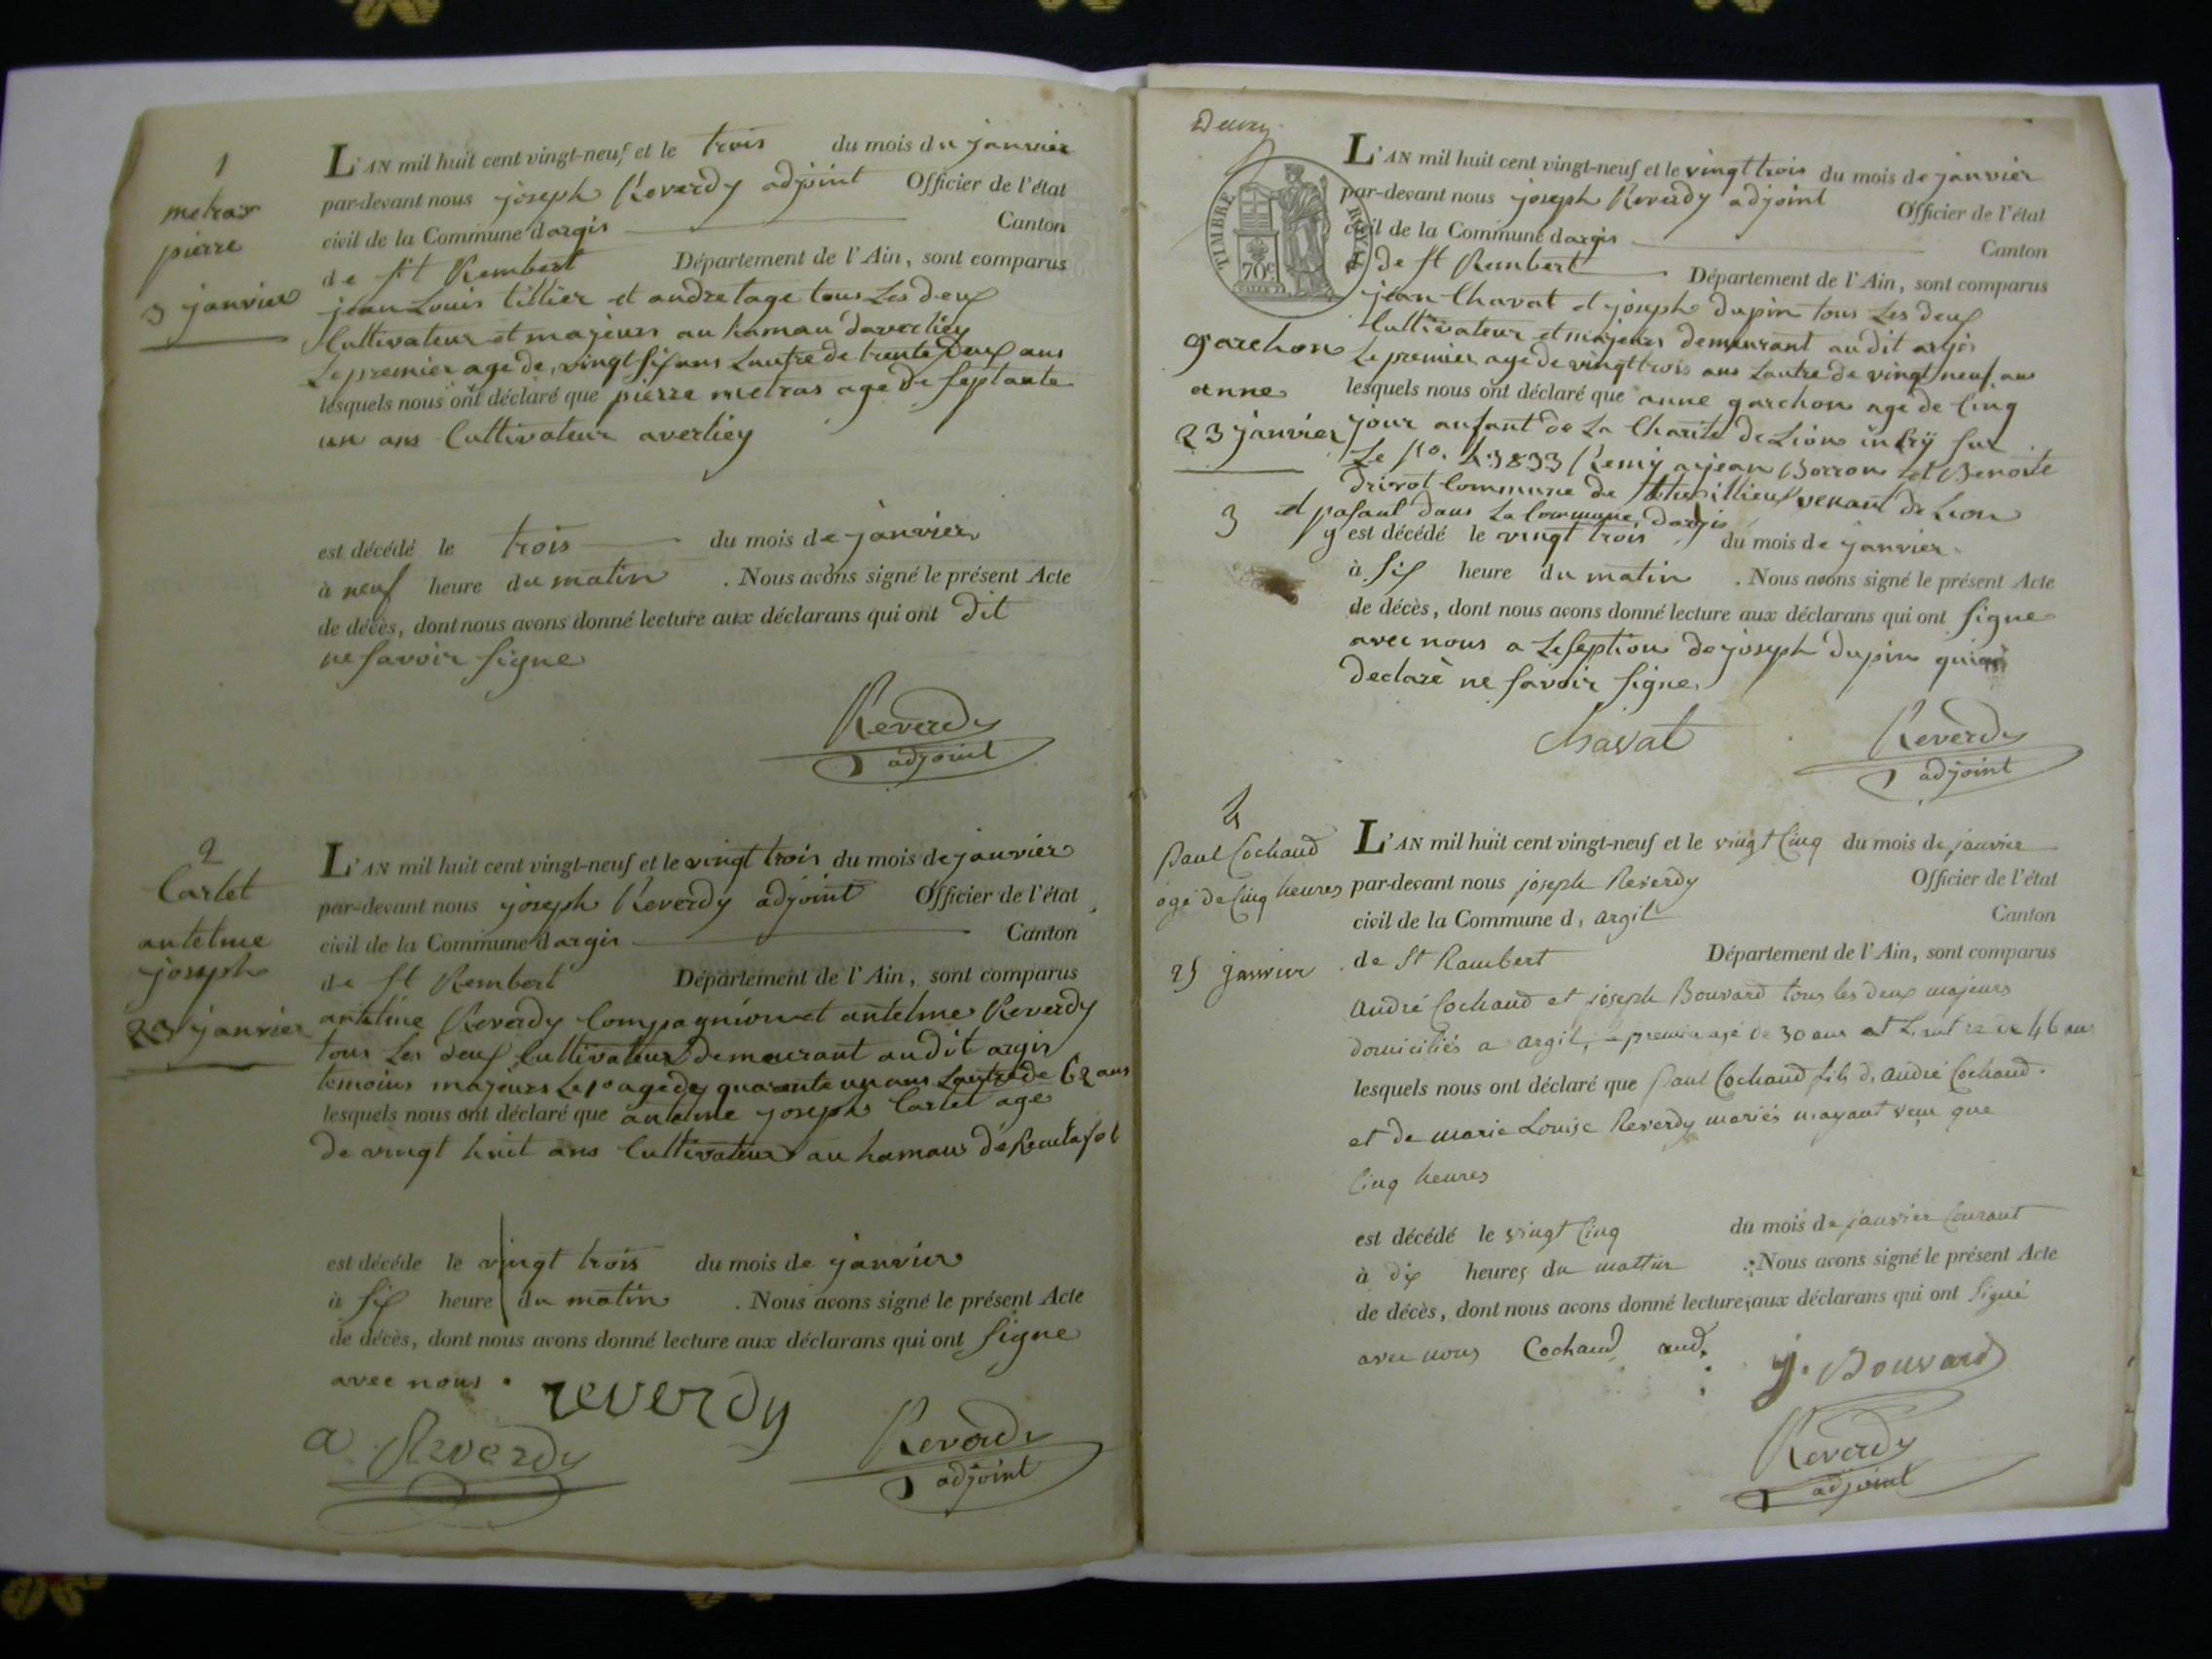 1
metras
pierre
3 janvier
L'AN mil huit cent vingt-neuf et le trois du mois de janvier
par-devant nous joseph Reverdy adjoint Officier de l'état
civil de la Commune d argis Canton
de st Rembert Département de l'Ain, sont comparus
jean Louis tillier et andre tage tous Les deux
Cultivateur et majeurs au hamau daverliey
Le premier age de vingt six ans Lautre de trente deux ans
lesquels nous ont déclaré que pierre metras age de septante
un ans Cultivateur averliey
est décédé le trois du mois de janvier
à neuf heure du matin . Nous avons signé le présent Acte
de décès, dont nous avons donné lecture aux déclarans qui ont dit
ne savoir signe
Reverdy
adjoint
2
Carlet
antelme
joseph
23 janvier
L'AN mil huit cent vingt-neuf et le vingt trois du mois de janvier
par-devant nous joseph Reverdy adjoint Officier de l'état
civil de la Commune d argis Canton
de st Rembert Département de l'Ain, sont comparus
antelme Reverdy Compagnion et antelme Reverdy
tous Les deux Cultivateur demeurant au dit argis
temoins majeurs Le 1o age de quarente un ans Lautre de 62 ans
lesquels nous ont déclaré que antelme joseph Carlet age
de vingt huit ans Cultivateur au hamau de Reculafol
est décédé le vingt trois du mois de janvier
à six heure du matin . Nous avons signé le présent Acte
de décès, dont nous avons donné lecture aux déclarans qui ont signe
avec nous .
reverdy
a Reverdy
Reverdy
adjoint
TIMBRE ROYAL
70c
garchon
anne
23 janvier
3
L'AN mil huit cent vingt-neuf et le vingt trois du mois de janvier
par-devant nous joseph Reverdy adjoint Officier de l'état
civil de la Commune d argis Canton
de st Rembert Département de l'Ain, sont comparus
jean Chavat et joseph dupin tous Les deux
Cultivateur et majeurs demeurant au dit argis
Le premier age de vingt trois ans Lautre de vingt neuf ans
lesquels nous ont déclaré que anne garchon age de Cinq
jour anfant de La Charite de Lion inscrij sur
Le no. 43833 Remij a jean Borron et Benoite
drivot Commune de venant de Lion
et pasant dans La Commune dargis
y est décédé le vingt trois du mois de janvier
à six heure du matin . Nous avons signé le présent Acte
de décès, dont nous avons donné lecture aux déclarans qui ont signe
avec nous a Lesseption de joseph dupin qui a
declarè ne savoir signe.
Chavat
Reverdy
adjoint
4
Paul Cochaud
agé de Cinq heures
25 janvier
L'AN mil huit cent vingt-neuf et le vingt Cinq du mois de janvier
par-devant nous joseph Reverdy Officier de l'état
civil de la Commune d, argil Canton
de St Rambert Département de l'Ain, sont comparus
André Cochaud et joseph Bouvard tous les deux majeurs
domiciliés a argil, le premier agé de 30 ans et L'autre de 46 ans
lesquels nous ont déclaré que Paul Cochaud fils d, andré Cochaud.
et de marie Louise Reverdy mariés n'ayant veçu que
Cinq heures
est décédé le vingt Cinq du mois de janvier Courant
à dix heures du mattin . Nous avons signé le présent Acte
de décès, dont nous avons donné lecture aux déclarans qui ont signé
avec nous Cochaud and.
j. Bouvard
Reverdy
adjoint